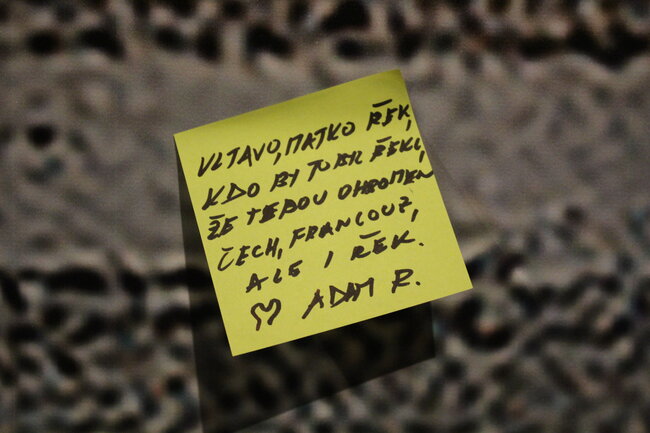 VLTAVO, MATKO ŘEK,
KDO BY TO BYL ŘEKL,
ŽE TEBOU OHROMEN
ČECH, FRANCOUZ,
ALE I ŘEK.
♡ ADAM R.